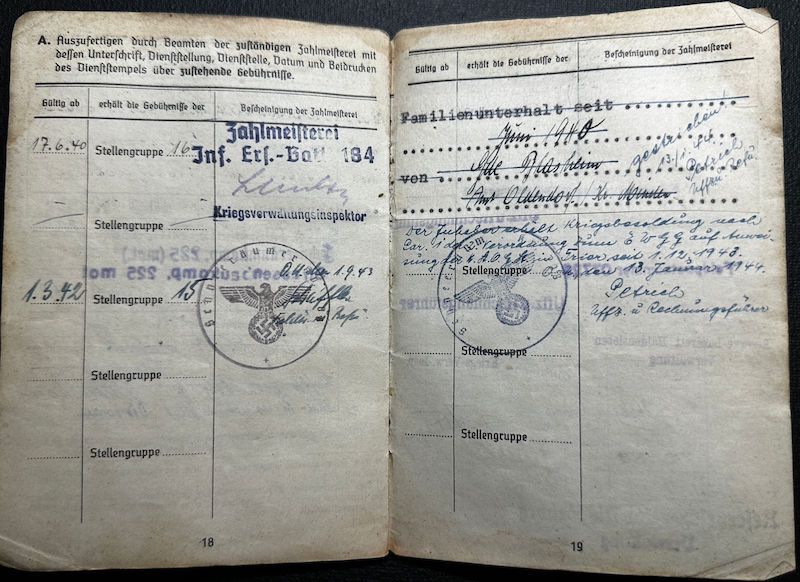 A. Auszufertigen durch Beamten der zuständigen Zahlmeisterei mit
dessen Unterschrift, Dienststellung, Dienststelle, Datum und Beidrucken
des Dienststempels über zustehende Gebührnisse.
Gültig ab
erhält die Gebührnisse der
Bescheinigung der Zahlmeisterei
17.6.40
Stellengruppe 16
Zahlmeisterei
Inf. Ers.-Batl 184
Kriegsverwaltungsinspektor
Stellengruppe
1.3.42
Stellengruppe 15
O.U. den 1.9.43
Stellengruppe
Stellengruppe
18
Gültig ab
erhält die Gebührnisse der
Bescheinigung der Zahlmeisterei
Familienunterhalt seit
Juni 1940
von
gestrichen!
13.1.44
Petrich
Uffz. u. Refü.
Amt Oldendorf, Kr. Minden
Der Inhaber erhält Kriegsbesoldung nach
Verordnung zum E W G G auf Anwei-
sung der in Trier seit 1.12.1943.
Stellengruppe
den 13. Januar 1944.
Petrich
Uffz. u. Rechnungsführer
Stellengruppe
Stellengruppe
19